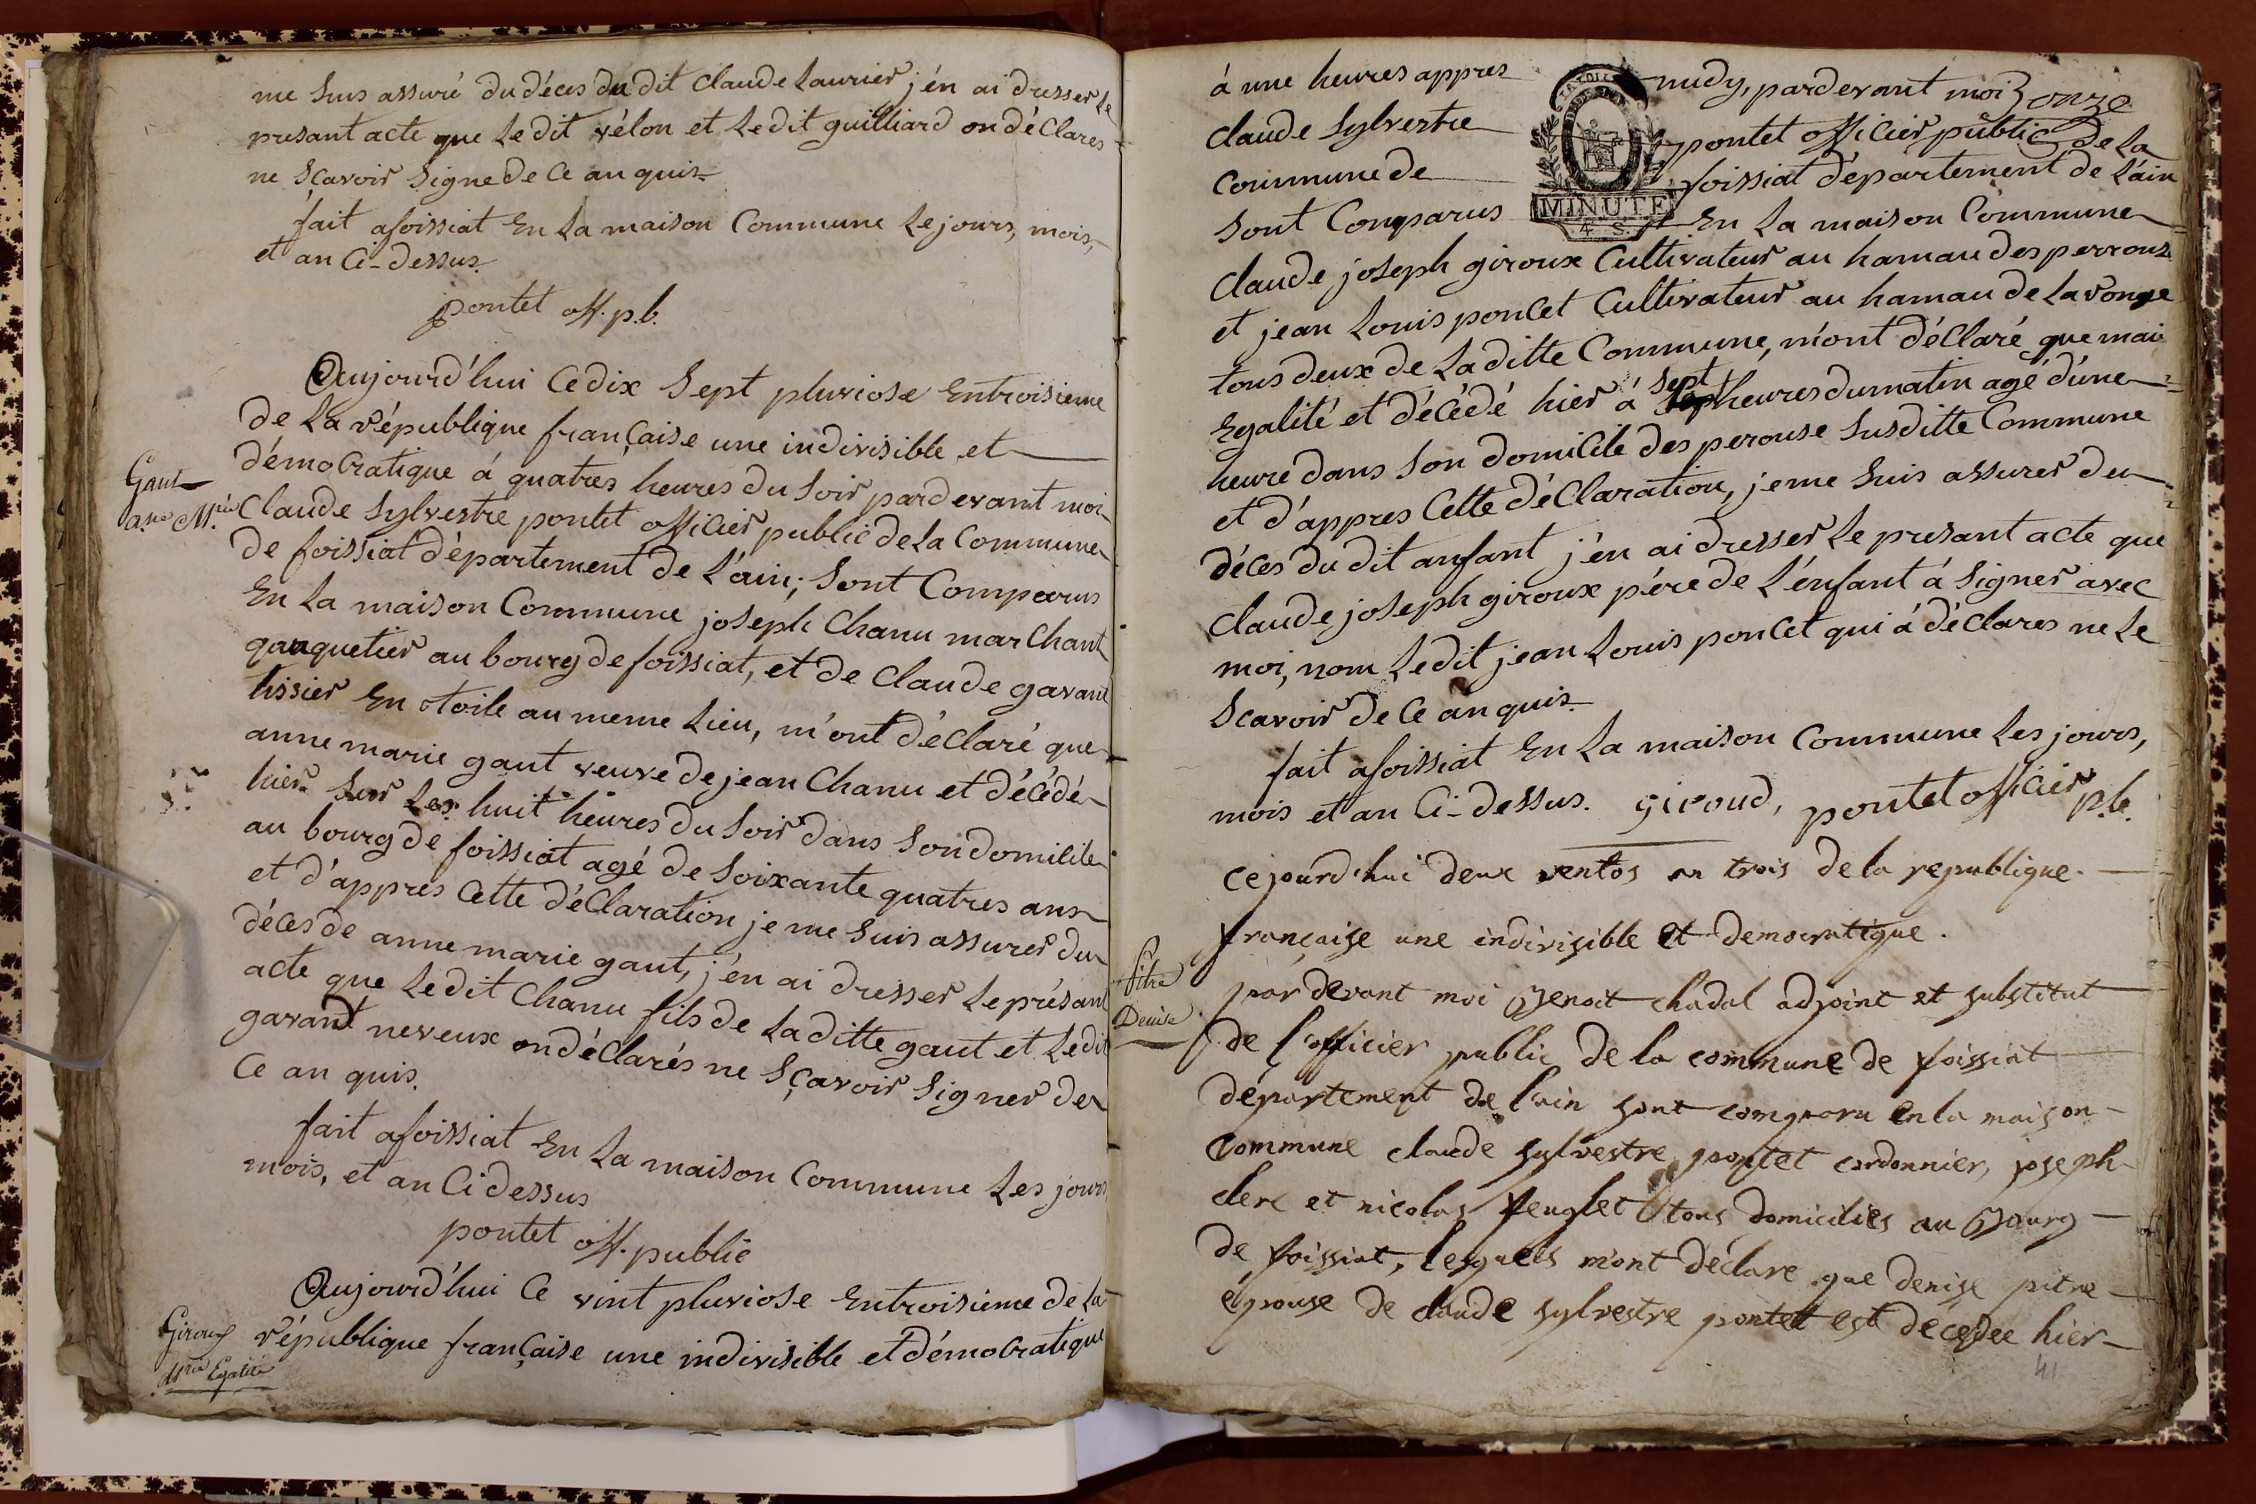 me suis assuré du déces du dit claude Laurier j'én ai dresser Le
presant acte que Le dit vélon et Le dit guilliard on déclares
ne sçavoir signe de ce an quis
fait afoissiat En La maison Commune Le jours, mois,
et an Ci-dessus.
pontet off. p.b.
Aujourd'hui Ce dix sept pluviose Entroisieme
de La république française une indivisible et
démocratique á quatres heures du soir pardevant moi
Gaut
a.ne M.rie
Claude Sylvestre pontet officier public de La Commune
de foissiat département de L'ain; sont Comparus
En La maison Commune joseph Chanu marchant
qauquetier au bourg de foissiat, et de Claude gavant
tissier En toile au meme Lieu, m'ont déclaré que
anne marie gaut veuve de jean Chanu et décédé
hier sur Les huit heures du soir dans son domicile
au bourg de foissiat agé de soixante quatres ans
et d'appres Cette déclaration je me suis assurer du
déces de anne marie gaut, j'én ai dresser Le présant
acte que Le dit Chanu fils de La ditte gaut et Le dit
gavant neveux on déclarés ne sçavoir signer de
Ce an quis.
fait afoissiat En La maison Commune Les jours
mois, et an Ci dessus
pontet off. public
Aujourd'hui Ce vint pluviose Entroisieme de La
Giroux
M.rie Egalité
république française une indivisible et démocratique
á une heures appres midy, pardevant moi onze
Claude Sylvestre pontet officier public de La
Commune de foissiat département de L'ain
MINUTE
4. S.
sont Comparus En La maison Commune
Claude joseph giroux Cultivateur au hamau des perrouse
et jean Louis poncet Cultivateur au hamau de Laronge
tous deux de La ditte Commune, m'ont déclaré que mari
Egalité et décédé hier á sept heures du matin agé d'une
heure dans son domicile des perouse susditte Commune
et d'appres Cette déclaration, je me suis assurer du
déces du dit anfant j'én ai dresser Le presant acte que
Claude joseph giroux pére de L'énfant á signer avec
moi, nom Le dit jean Louis poncet qui á déclares ne Le
scavoir de Ce an quis.
fait afoissiat En La maison Commune Les jours,
mois et an Ci-dessus. giroud, pontet officier p.b.
cejourd'hui deux ventos an trois de la republique
française une indivisible et democratique.
Pitre
Denise
par devant moi Benoit chadal adjoint et substitut
de l'officier public de la commune de foissiat
département de l'ain sont comparu en la maison
commune claude sylvestre pontet cordonnier, joseph
clerc et nicolas feuglet tous domiciliés au Bourg
de foissiat, lesquels m'ont déclare que denise pitre
epouse de claude sylvestre pontet est décédee hier
41